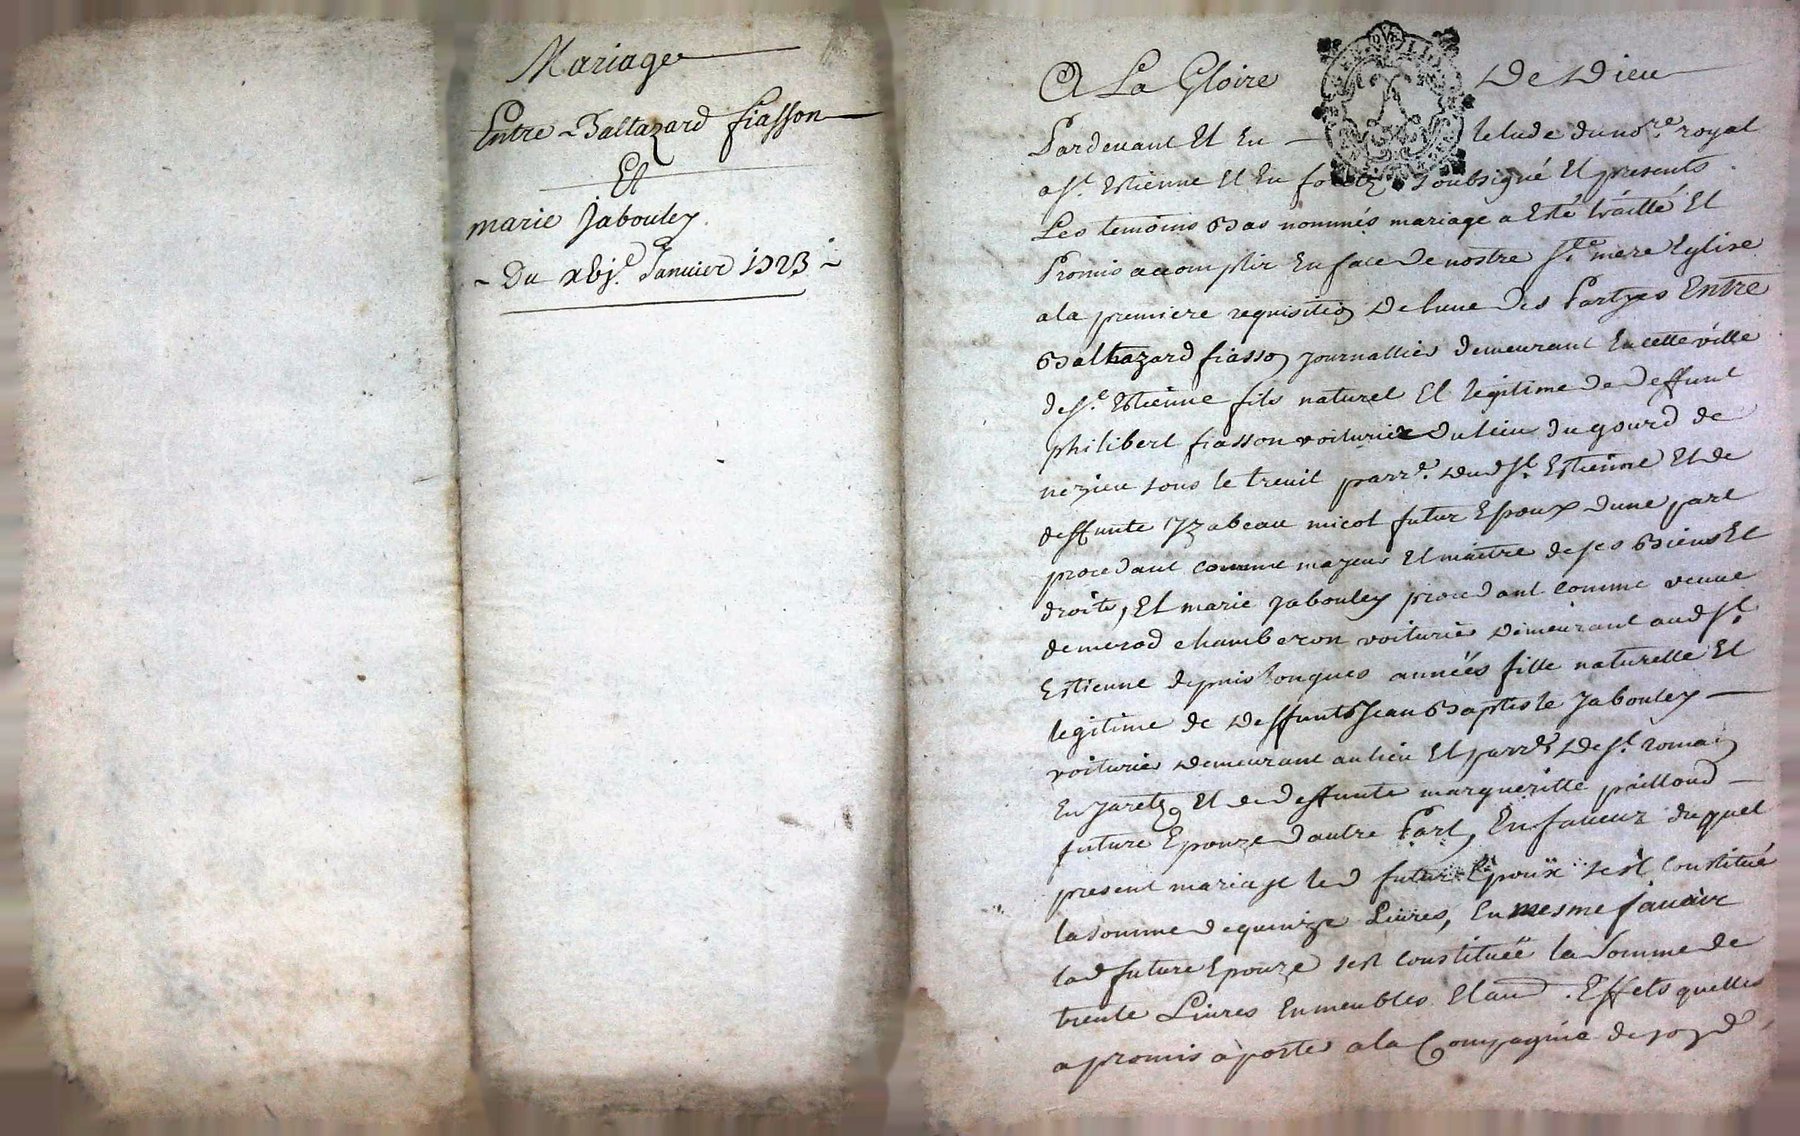 Mariage
Entre Baltazard fiasson
Et
marie Jabouley
Du xbj.e Janvier 1723
A La Gloire De Dieu
Pardevant Et En letude du no.re royal
a S.t Estienne Et En foretz soubsigné Et presents
Les temoins Bas nommés mariage a Esté traitté Et
Promis accomplir En face de nostre S.te mere Eglise
a la premiere requisition De lune Des Partyes Entre
Balthazard fiasson journallier demeurant En cette ville
de S.t Estienne fils naturel Et legitime de deffunt
philibert fiasson voiturier du lieu du gourd de
nezieu sous le treuil parr.e dud S.t Estienne Et de
deffunte Yzabeau micol futur Epoux dune part
procedant comme majeur Et maitre de ses Biens Et
droits, Et marie jabouley procedant comme veuve
de merad chamberon voiturier demeurant aud S.t
Estienne depuis longues années fille naturelle Et
legitime de deffunts Jean Baptiste jabouley
voiturier demeurant au lieu Et parr.e de S.t romain
En jaretz Et de deffunte margueritte pailloud
future Epouze dautre Part, En faveur duquel
present mariage led futur Epoux sest constitué
la somme de quinze Livres, En mesme faveur
lad future Epouze sest constituée la somme de
trente Livres En meubles Et aud. Effets quelles
a promis àporter a la Compagnie de sond